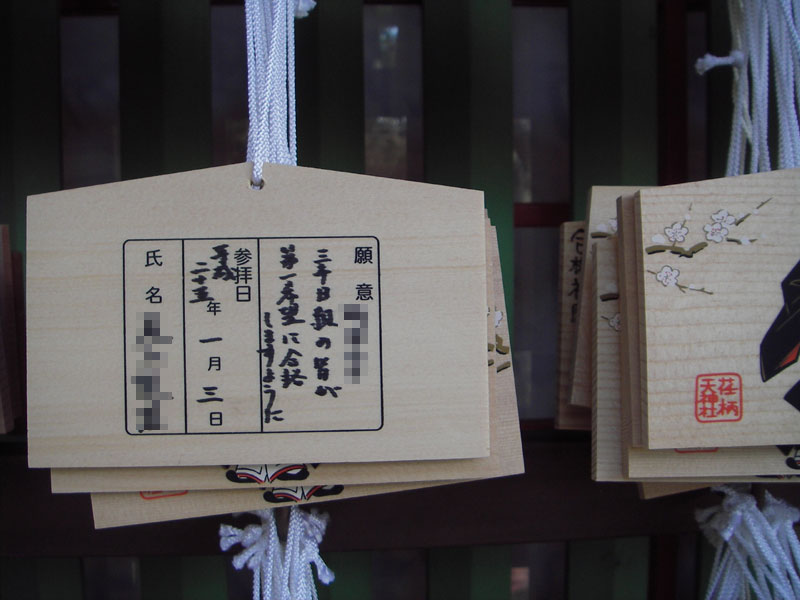 願意
三年B組の皆が
第一希望に合格
しますように
参拝日
平成
二十五年一月三日
氏名
荏柄
天神社